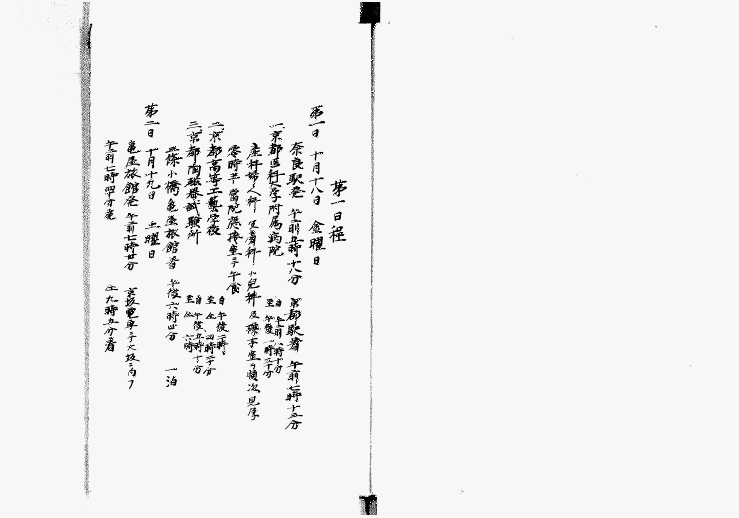 第一日程
第一日 十月十八日 金曜日
奈良駅発 午前五時十八分 京都駅着 午前七時十五分
一、京都医科大学附属病院 自午前八時十分 至午後一時三十分
産科婦人科 皮膚科 小児科 及 標本室ヲ順次見学
零時半 当院応接室ニテ午食
二、京都高等工芸学校 自午後二時 至仝 四時二十分
三、京都陶磁器試験所 自午後五時十分 至仝 六時
五條小橋亀屋旅館着 午後六時廿分 一泊
第二日 十月十九日 土曜日
亀屋旅館発 午前七時廿分 京阪電車ニテ大坂ニ向フ
午前七時四十分発 仝九時五分着